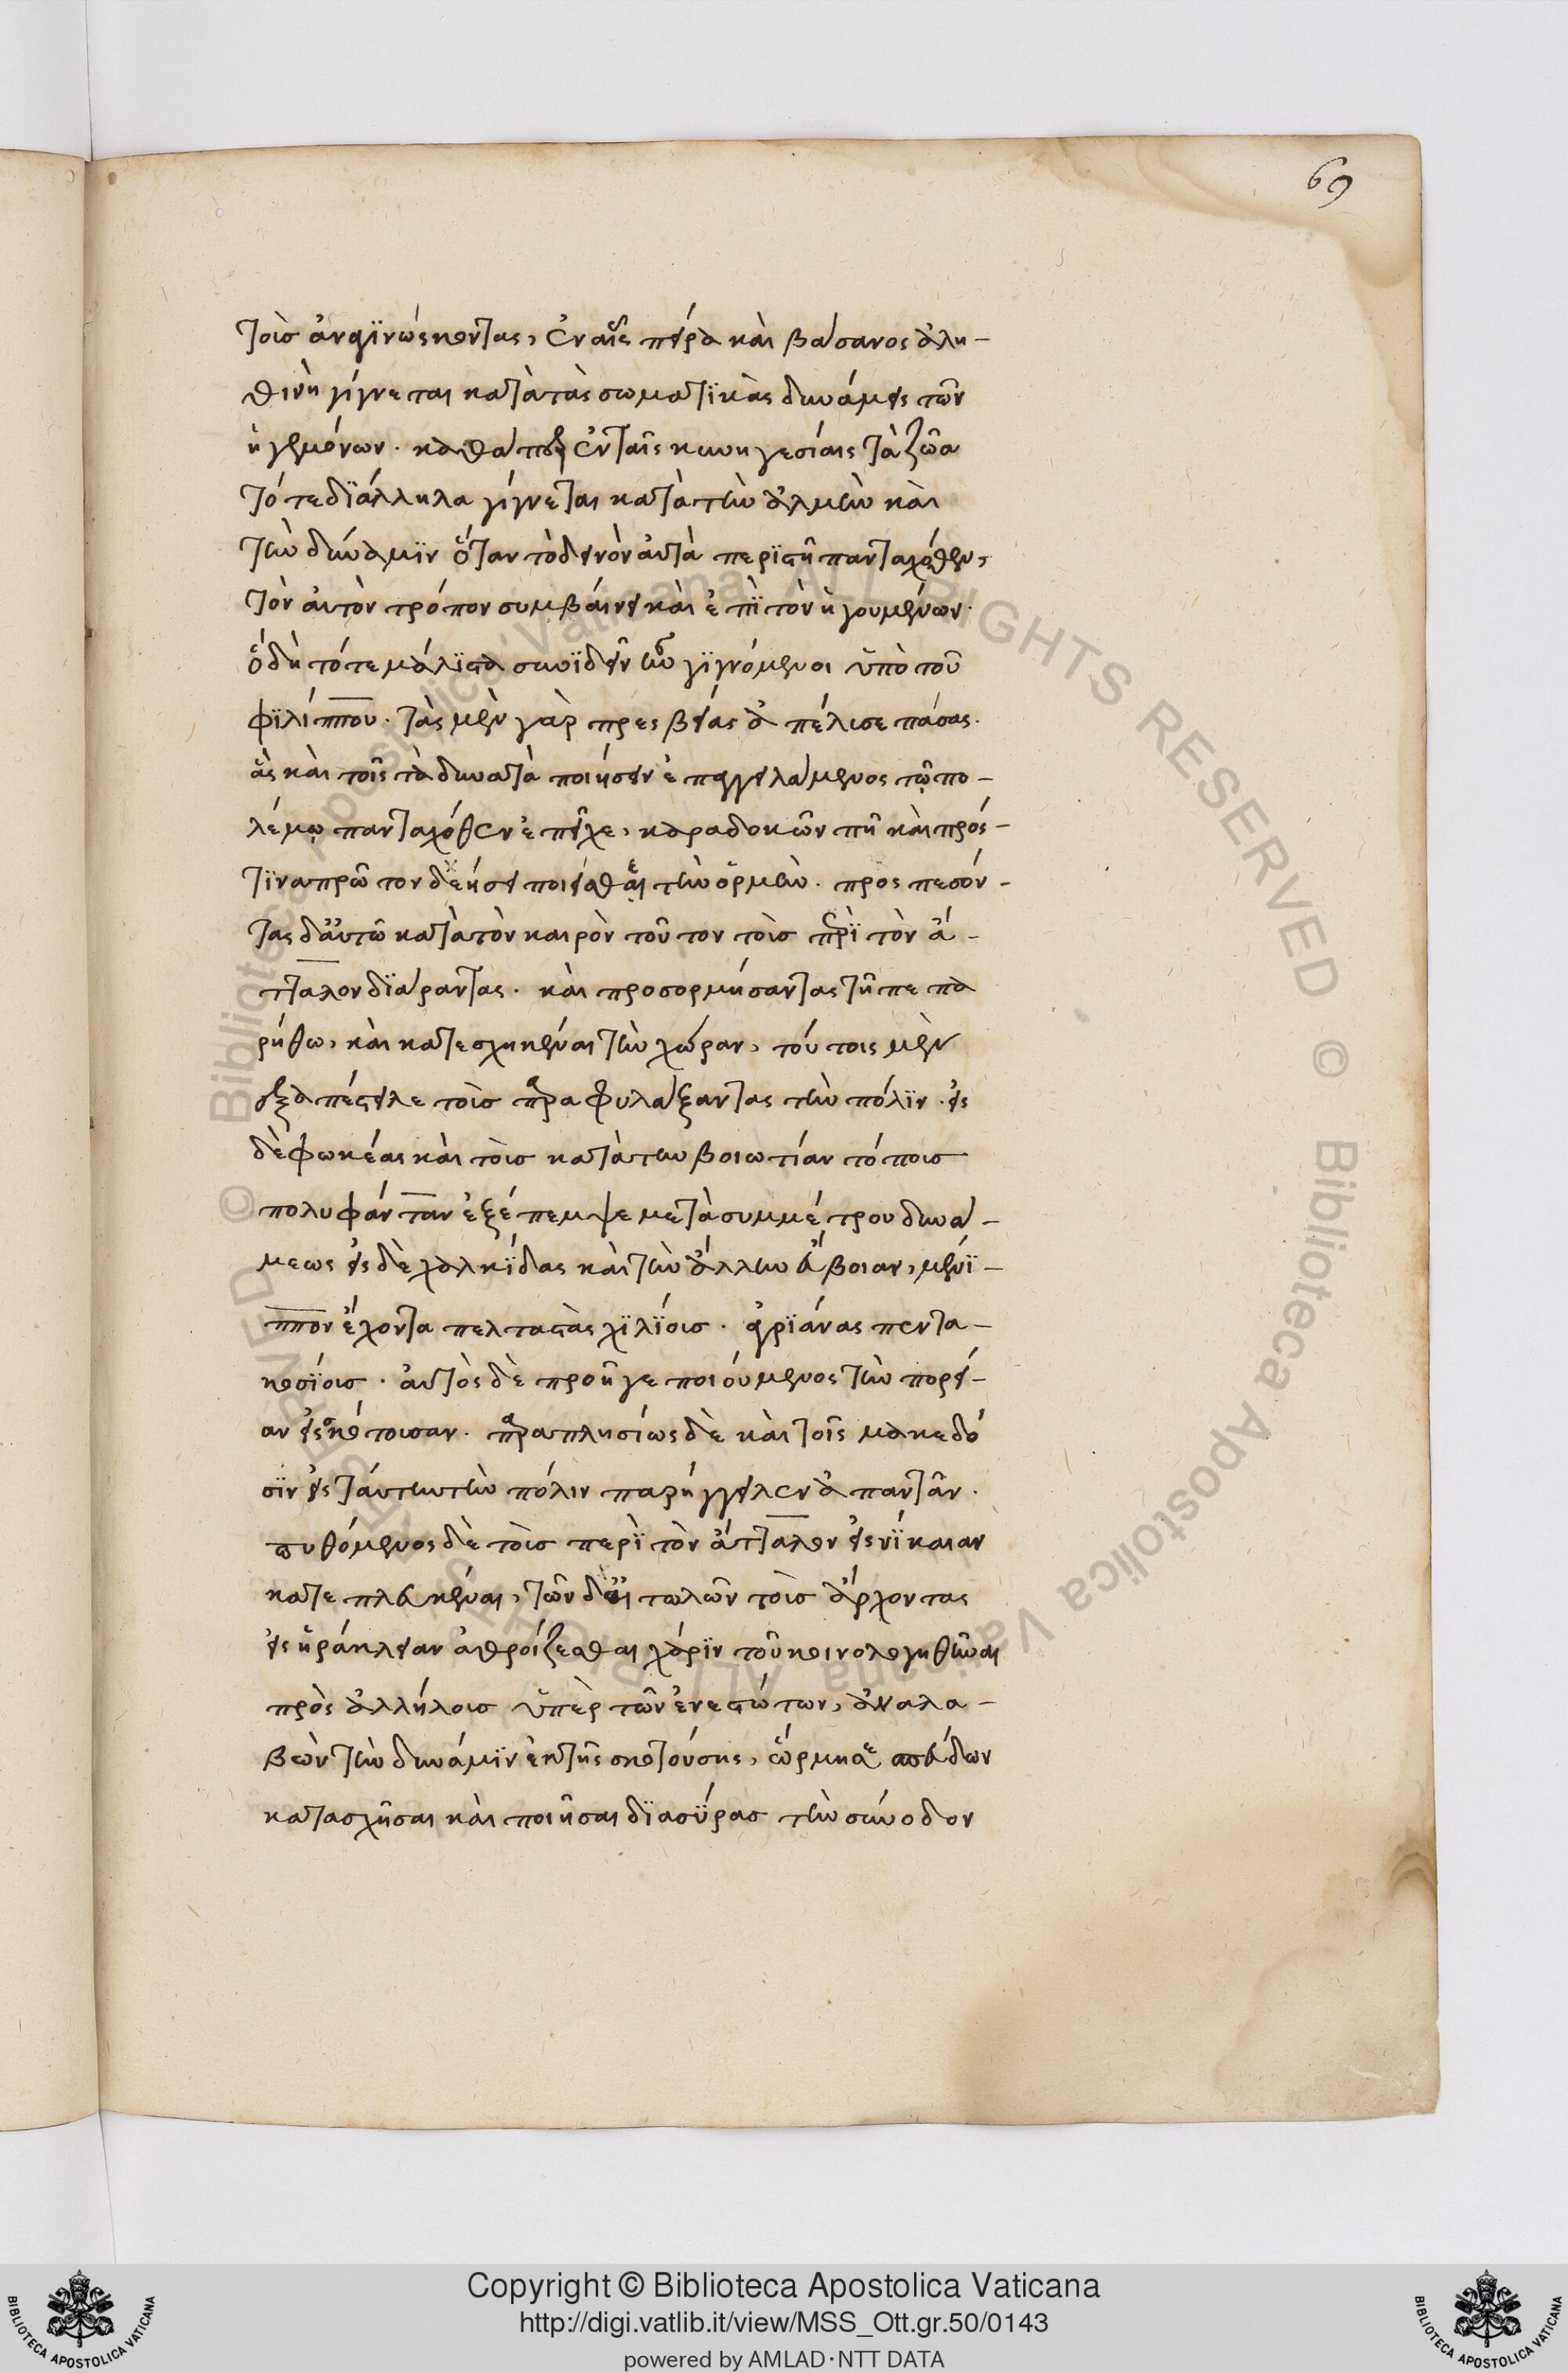 69
τοὺσ ἀναγϊνώσκοντας, ἐν αἷς πεῖρα καὶ βάσανος ἀλη-
θινὴ γίγνεται κατὰ τὰς σωματϊκὰς δυνάμεις τῶν
ἡγεμόνων. καθάπερ ἐν ταῖς κυνηγεσίαις τὰ ζῶα
τότε διάλληλα γίγνεται κατὰ τὴν ἀλμὴν καὶ
τὴν δύναμϊν ὅταν τὸ δεινὸν αὐτὰ περϊστῆ πανταχόθεν,
τὸν αὐτὸν τρόπον συμβαίνει καὶ ἐπὶ τὸν ἡγουμένων.
ὃ δὴ τότε μάλϊστα συνϊδεῖν ἦν γϊγνόμενοι ὑπὸ τοῦ
φϊλίππου. τὰς μὲν γὰρ πρεσβείας ἀπέλυσε πάσας.
ἃς καὶ τοῖς τὰ δυνατὰ ποιήσειν ἐπαγγειλάμενος τῷ πο-
λέμῳ πανταχόθεν ἐπεῖχε, καραδοκῶν πῆ καὶ πρὸς
τίνα πρῶτον δεήσει ποιεῖσθαι τὴν ὁρμὴν. προσπεσόν-
τας δ' αὐτῶ κατὰ τὸν καιρὸν τοῦτον τοὺσ περὶ τὸν ἄ-
τταλον διάραντας. καὶ προσορμήσαντας τῆ πεπα
ρήθω, καὶ κατεσχηκέναι τὴν χώραν, τούτοις μὲν
ἐξαπέστειλε τοὺσ παραφυλάξαντας τὴν πόλϊν. εἰς
δὲ φωκέας καὶ τοὺσ κατὰ την βοιωτίαν τόπουσ
πολυφάνταν ἐξέπεμψε μετὰ συμμέτρου δυνά-
μεως εἰς δὲ χαλκϊδας καὶ τὴν ἄλλην εὔβοιαν, μένϊ-
ππον ἔχοντα πελταστὰς χϊλϊουσ. ἀγρϊάνας πεντα-
κοσϊουσ. αὐτὸς δὲ προῆγε ποιούμενος τὴν πορεί-
αν εἰς σκότουσαν. παραπλησίως δὲ καὶ τοῖς μακεδό
σϊν εἰς ταύτην τὴν πόλιν παρήγγειλεν ἀπαντᾶν.
πυθόμενος δὲ τοὺσ περὶ τὸν ἄτταλον εἰς νίκαιαν
καταπλευκέναι, τῶν δ' αἰτωλῶν τοὺσ ἄρχοντας
εἰς ἡράκλειαν ἀθροίζεσθαι χάρϊν τοῦ κοινολογηθῆναι
πρὸς ἀλλήλουσ ὑπὲρ τῶν ἐνεστώτων, ἀναλα-
βὼν τὴν δυνάμϊν ἐκ τῆς σκοτούσης, ὥρμησε σπεύδων
κατασχῆσαι καὶ ποιῆσαι δϊασύρας τὴν σύνοδον
Copyright © Biblioteca Apostolica Vaticana
http://digi.vatlib.it/view/MSS_Ott.gr.50/0143
powered by AMLAD · NTT DATA